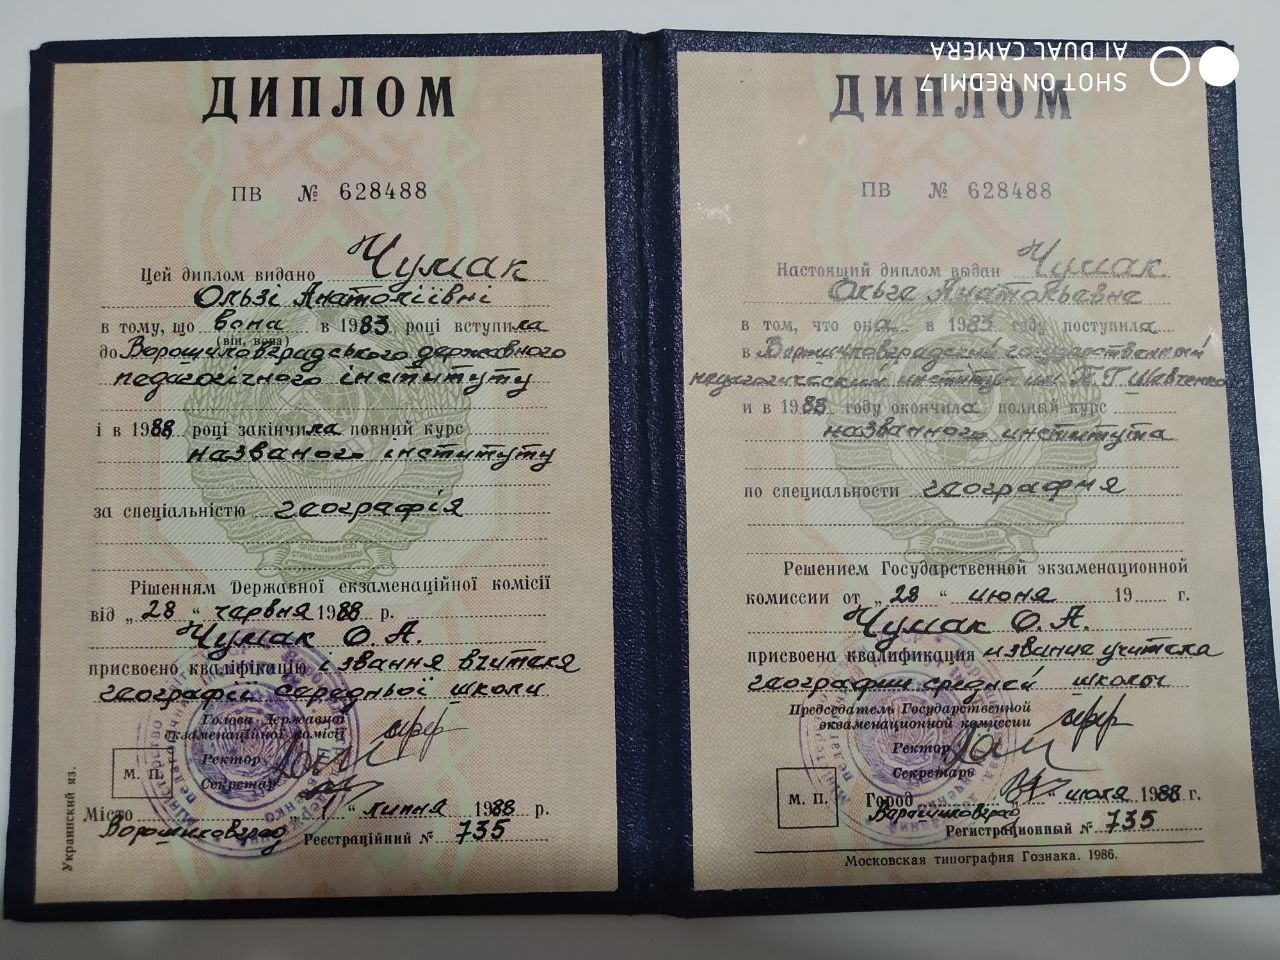 ДИПЛОМ
ПВ № 628488
Цей диплом видано Чумак
Ользі Анатоліївні
в тому, що вона в 1983 році вступила
(він, вона)
до Ворошиловградського державного
педагогічного інституту
і в 1988 році закінчила повний курс
названого інституту
за спеціальністю географія
Рішенням Державної екзаменаційної комісії
від „28" червня 1988 р.
Чумак О. А.
присвоєно кваліфікацію і звання вчителя
географії середньої школи
Голова Державної
екзаменаційної комісії
Ректор
Секретар
М. П.
Місто „1" липня 1988 р.
Ворошиловград Реєстраційний № 735
Украинский яз.
ДИПЛОМ
ПВ № 628488
Настоящий диплом выдан Чумак
Ольге Анатольевне
в том, что она в 1983 году поступила
в Ворошиловградский государственный
педагогический институт им. Т. Г. Шевченко
и в 1988 году окончила полный курс
названного института
по специальности география
Решением Государственной экзаменационной
комиссии от „28" июня 19 г.
Чумак О. А.
присвоена квалификация и звание учителя
географии средней школы
Председатель Государственной
экзаменационной комиссии
Ректор
Секретарь
М. П.
Город „1" июля 1988 г.
Ворошиловград
Регистрационный № 735
Московская типография Гознака. 1986.
SHOT ON REDMI 7
AI DUAL CAMERA